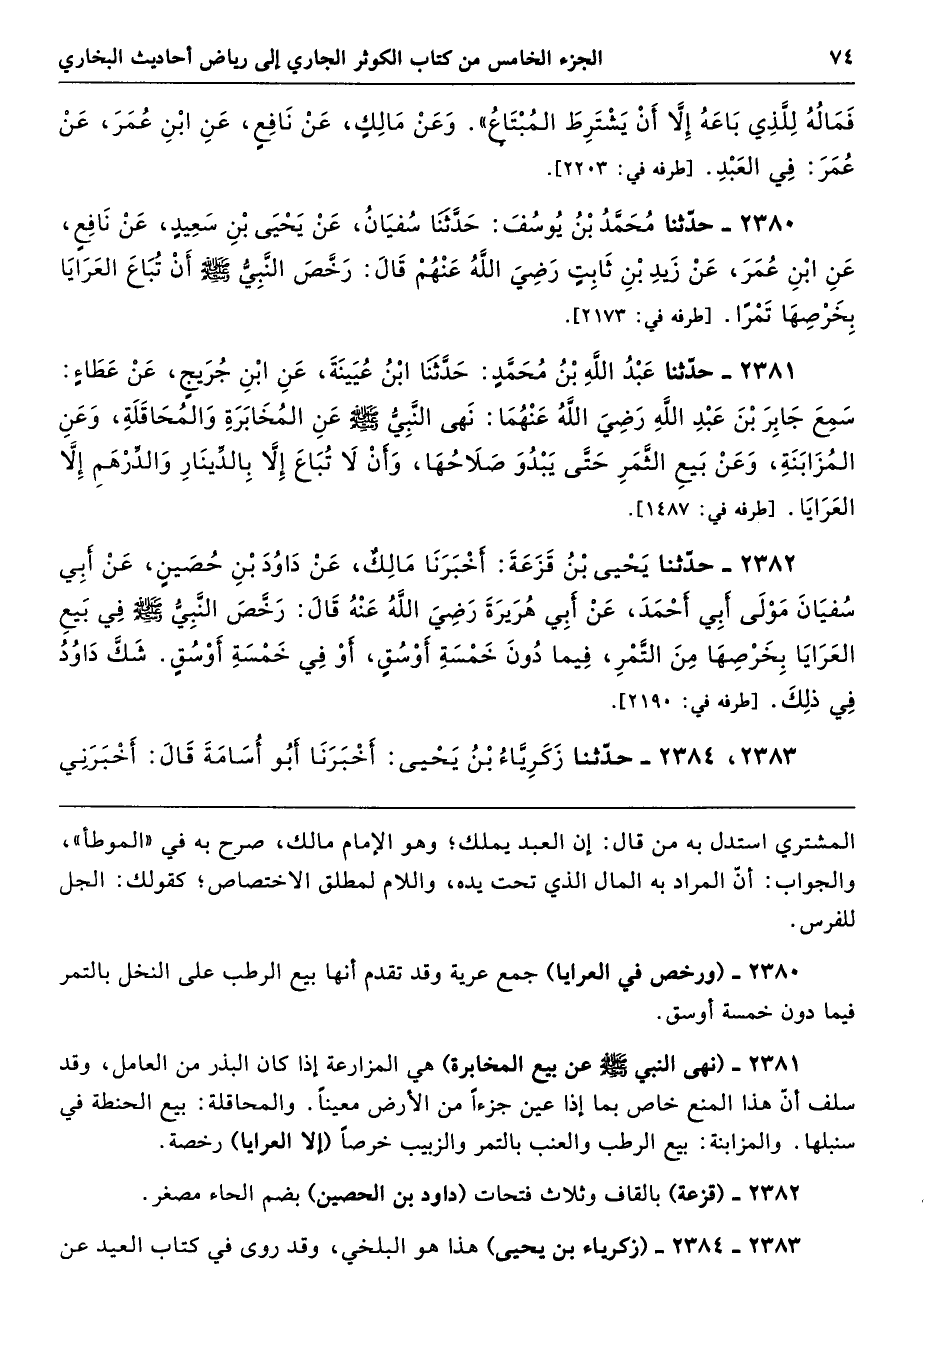 ٧٤ الجزء الخامس من كتاب الكوثر الجاري إلى رياض أحاديث البخاري
فَمَالُهُ لِلَّذِي بَاعَهُ إِلَّا أَنْ يَشْتَرِطَ المُبْتَاعُ». وَعَنْ مَالِكٍ، عَنْ نَافِعٍ، عَنِ ابْنِ عُمَرَ، عَنْ
عُمَرَ: فِي العَبْدِ. [طرفه في: ٢٢٠٣].
٢٣٨٠ ـ حدّثنا مُحَمَّدُ بْنُ يُوسُفَ: حَدَّثَنَا سُفيَانُ، عَنْ يَحْيَى بْنِ سَعِيدٍ، عَنْ نَافِعٍ،
عَنِ ابْنِ عُمَرَ، عَنْ زَيدِ بْنِ ثَابِتٍ رَضِيَ اللَّهُ عَنْهُمْ قَالَ: رَخَّصَ النَّبِيُّ ﷺ أَنْ تُبَاعَ العَرَايَا
بِخَرْصِهَا تَمْرًا. [طرفه في: ٢١٧٣].
٢٣٨١ ـ حدّثنا عَبْدُ اللَّهِ بْنُ مُحَمَّدٍ: حَدَّثَنَا ابْنُ عُيَينَةَ، عَنِ ابْنِ جُرَيجٍ، عَنْ عَطَاءٍ:
سَمِعَ جَابِرَ بْنَ عَبْدِ اللَّهِ رَضِيَ اللَّهُ عَنْهُمَا: نَهى النَّبِيُّ ﷺ عَنِ المُخَابَرَةِ وَالمُحَاقَلَةِ، وَعَنِ
المُزَابَنَةِ، وَعَنْ بَيعِ الثَّمَرِ حَتَّى يَبْدُوَ صَلَاحُهَا، وَأَنْ لَا تُبَاعَ إِلَّا بِالدِّينَارِ وَالدِّرْهَمِ إِلَّا
العَرَايَا. [طرفه في: ١٤٨٧].
٢٣٨٢ ـ حدّثنا يَحْيى بْنُ قَزَعَةَ: أَخْبَرَنَا مَالِكٌ، عَنْ دَاوُدَ بْنِ حُصَينٍ، عَنْ أَبِي
سُفيَانَ مَوْلَى أَبِي أَحْمَدَ، عَنْ أَبِي هُرَيرَةَ رَضِيَ اللَّهُ عَنْهُ قَالَ: رَخَّصَ النَّبِيُّ ﷺ فِي بَيعِ
العَرَايَا بِخَرْصِهَا مِنَ التَّمْرِ، فِيما دُونَ خَمْسَةِ أَوْسُقٍ، أَوْ فِي خَمْسَةِ أَوْسُقٍ. شَكَّ دَاوُدُ
فِي ذلِكَ. [طرفه في: ٢١٩٠].
٢٣٨٣، ٢٣٨٤ ـ حدّثنا زَكَرِيَّاءُ بْنُ يَحْيى: أَخْبَرَنَا أَبُو أُسَامَةَ قَالَ: أَخْبَرَنِي
المشتري استدل به من قال: إن العبد يملك؛ وهو الإمام مالك، صرح به في «الموطأ»،
والجواب: أنّ المراد به المال الذي تحت يده، واللام لمطلق الاختصاص؛ كقولك: الجل
للفرس.
٢٣٨٠ ـ (ورخص في العرايا) جمع عرية وقد تقدم أنها بيع الرطب على النخل بالتمر
فيما دون خمسة أوسق.
٢٣٨١ ـ (نهى النبي ﷺ عن بيع المخابرة) هي المزارعة إذا كان البذر من العامل، وقد
سلف أنّ هذا المنع خاص بما إذا عين جزءاً من الأرض معيناً. والمحاقلة: بيع الحنطة في
سنبلها. والمزابنة: بيع الرطب والعنب بالتمر والزبيب خرصاً (إلا العرايا) رخصة.
٢٣٨٢ ـ (قزعة) بالقاف وثلاث فتحات (داود بن الحصين) بضم الحاء مصغر.
٢٣٨٣ ـ ٢٣٨٤ ـ (زكرياء بن يحيى) هذا هو البلخي، وقد روى في كتاب العيد عن